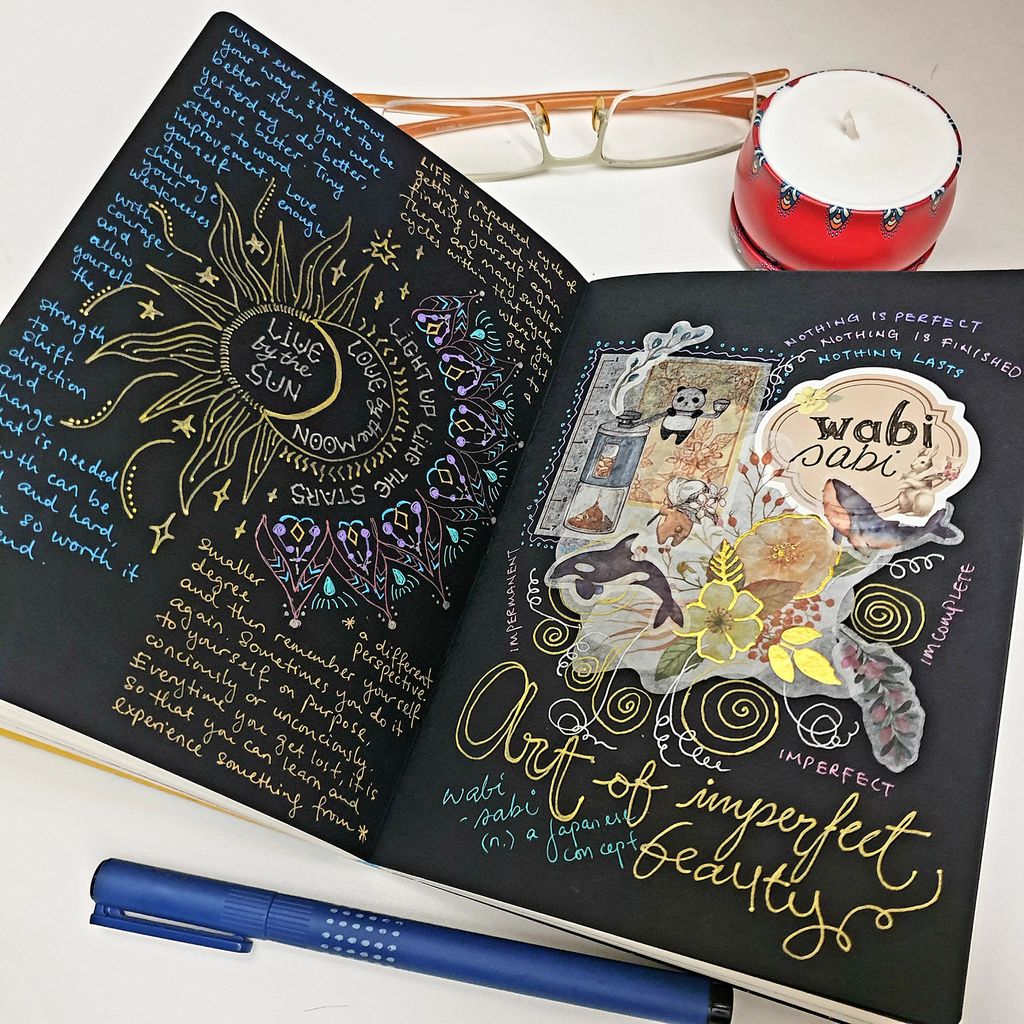 what ever life throws
your way, strive to be
better than you were
yesterday, do better,
choose better. Tiny
steps toward
improvement. Love
yourself enough
to
challenge
your
weaknesses
with
courage,
and
allow
yourself
the
strength
to
shift
direction
and
change
what is needed
can be
and hard
so worth it
end.
LIFE is repeated
getting lost and cycle of
finding yourself then of
there are many smaller again
cycles within that cycle
where you
LIVE
by the
SUN
LOVE by the MOON
LIGHT UP LIKE THE STARS
smaller
degree
and then remember yourself
again. Sometimes you do it
to yourself on purpose,
conciously or unconciously.
Everytime you get lost, it is
so that you can learn and
experience something from*
*a different
perspective
NOTHING IS PERFECT
NOTHING IS FINISHED
NOTHING LASTS
wabi
sabi
IMPERMANENT
IMCOMPLETE
IMPERFECT
Art of imperfect
beauty
wabi
-sabi
(n.) a Japanese
concept